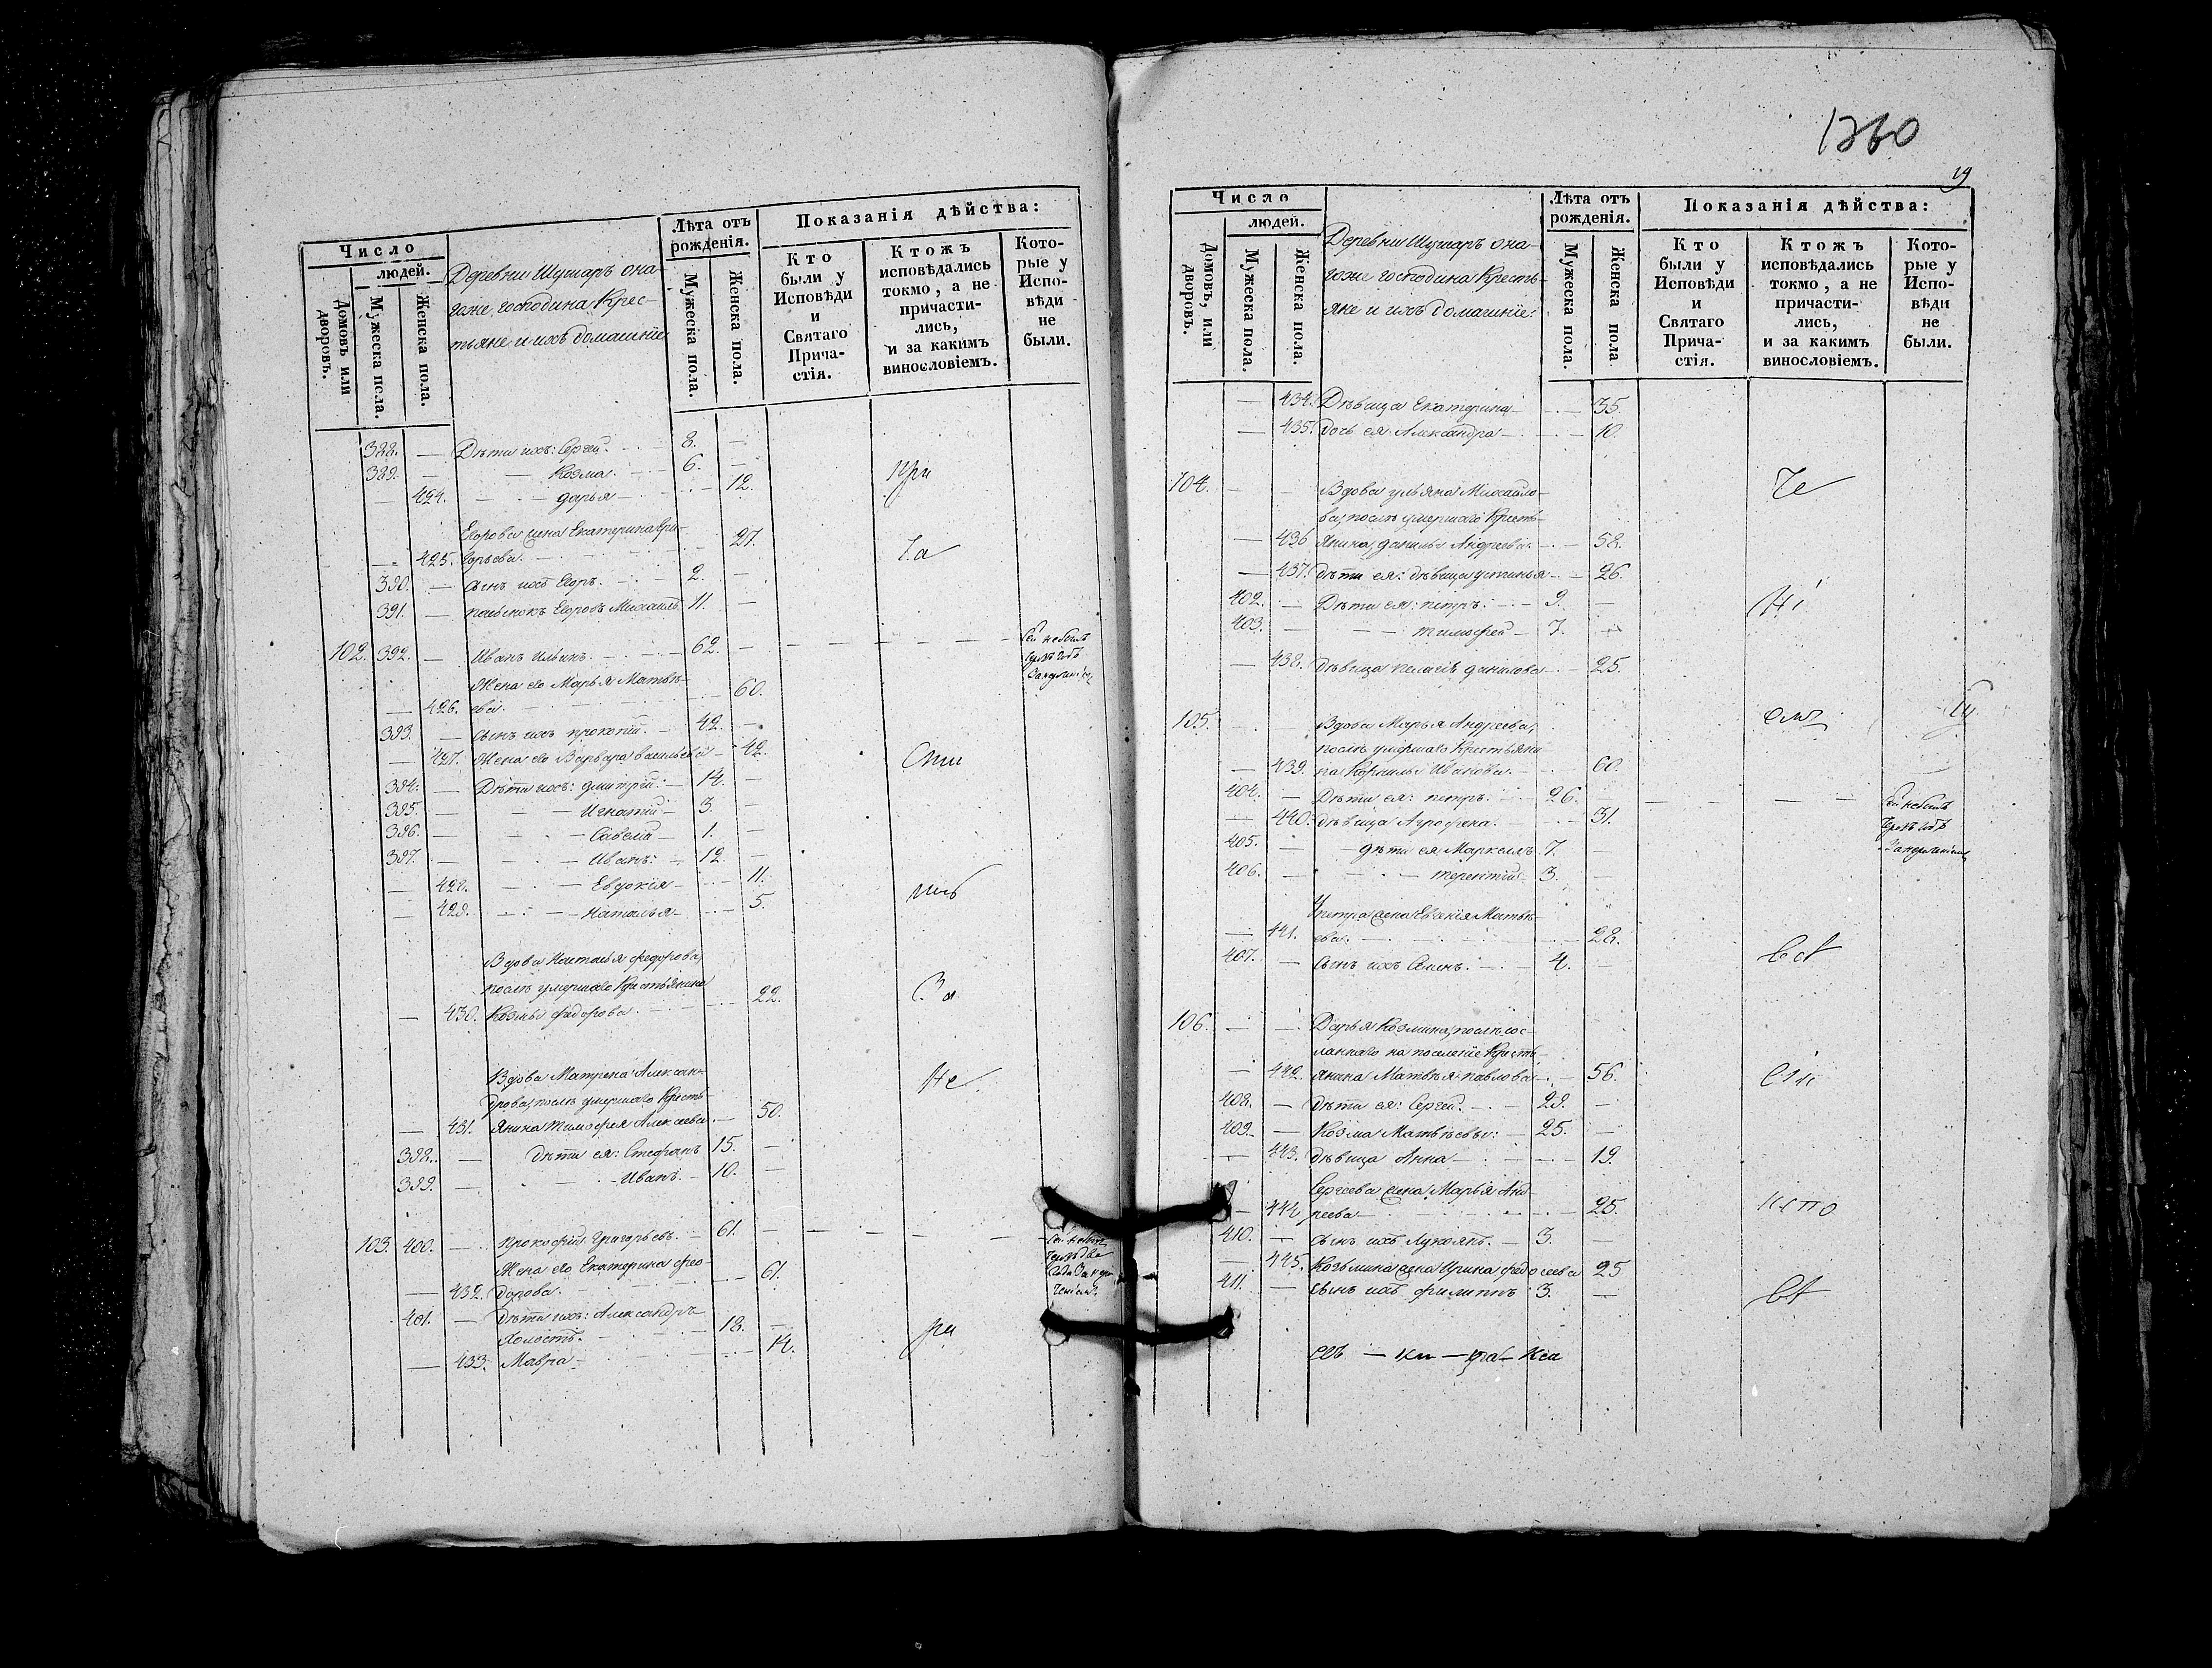 Число
людей.
Домовъ или дворовъ.
Мужеска пола.
Женска пола.
Деревни Шушаръ она-
гоже господина Крес-
тьяне и ихъ домашніе
Лѣта отъ рожденія.
Мужеска пола.
Женска пола.
Показанія дѣйства:
Кто были у Исповѣди и Святаго Прича-стія.
Ктожъ исповѣдались токмо, а не причасти-лись, и за какимъ винословіемъ.
Кото-рые у Испо-вѣди не были.
388. — Дѣти ихъ: Сергей. — 8. —
389. — Козма. — 6. —
— 424. — дарья — 12.
при
Егорова жена Екатерина Гри-
— 425. горьева. — 27.
390. — сынъ ихъ Егоръ. — 2. —
391. — пасынокъ Егоровъ Михаилъ. 11. —
102. 392. — Иванъ Ильинъ. — 62. —
Сей не былъ
Жена его Марья Матвѣ-
— 426. ева. — 60.
393. — сынъ ихъ прокопій. — 42. —
— 427. Жена его Варвара васильева — 42.
394. — Дѣти ихъ: дмитрей: — 14. —
395. — Игнатій — 3. —
396. — Савелій — 1. —
397. — Иванъ: — 12. —
— 428. — Евдокія — 11.
— 429. — Наталья — 5.
Вдова Наталья федорова,
послѣ умершаго Крестьянина
— 430. Козмы федорова. — 22.
За
Вдова Матрена Алексан-
дрова, послѣ умершаго Кресть-
— 431. янина тимофея Алексеева. — 50.
Не
398. — дѣти ея: Стефанъ 15. —
399. — Иванъ. — 10. —
103. 400. — прокофій Григорьевъ. — 61. —
Жена его Екатерина фео-
— 432. дорова. — 61.
401. — дѣти ихъ: Александръ
Холостъ. — 18. —
— 433. Мавра — 14.
1360
19
Число
людей.
Домовъ, или дворовъ.
Мужеска пола.
Женска пола.
Деревни Шушаръ она-
гоже господина Кресть-
яне и ихъ домашніе:
Лѣта отъ рожденія.
Мужеска пола.
Женска пола
Показанія дѣйства:
Кто были у Исповѣди и Святаго Прича-стія.
Ктожъ исповѣдались токмо, а не причасти-лись, и за какимъ винословіемъ.
Кото-рые у Испо-вѣди не были.
— 434. Дѣвица Екатерина — 35.
— 435. дочь ея Александра — 10.
104. — Вдова ульяна Михайло-
ва, послѣ умершаго Кресть-
— 436 янина, данилы Андреева. — 58.
— 437. дѣти ея: дѣвица устинья — 26.
402. — Дѣти ея: петръ: — 9. —
403. — тимофей — 7. —
— 438. дѣвица пелагея данилова — 25.
105. Вдова Марья Андреева,
послѣ умершаго Крестьяни-
— 439. на Корнилы Иванова. — 60.
404. — Дѣти ея: петръ: — 26. —
Сей не былъ
— 440. дѣвица Агрофена. — 31.
405. — дѣти ея, Маркеллъ 7. —
406. — терентій 3. —
петра жена Евгенія Матвѣ-
— 441. ева. — 28.
407. — сынъ ихъ Семенъ. — 4. —
106. — Дарья Козмина, послѣ сос-
ланнаго на поселеніе Кресть-
— 442. янина Матвѣя павлова — 56.
408. — дѣти ея: Сергей. — 29. —
409. — Козма Матвѣевы: — 25. —
— 443. дѣвица Анна — 19.
Сергеева жена Марья Анд-
— 444 реева — 25.
410. — сынъ ихъ Лукоянъ. — 3. —
— 445. Козьмина жена Ирина федосеева 25
411. — сынъ ихъ филиппъ 3. —